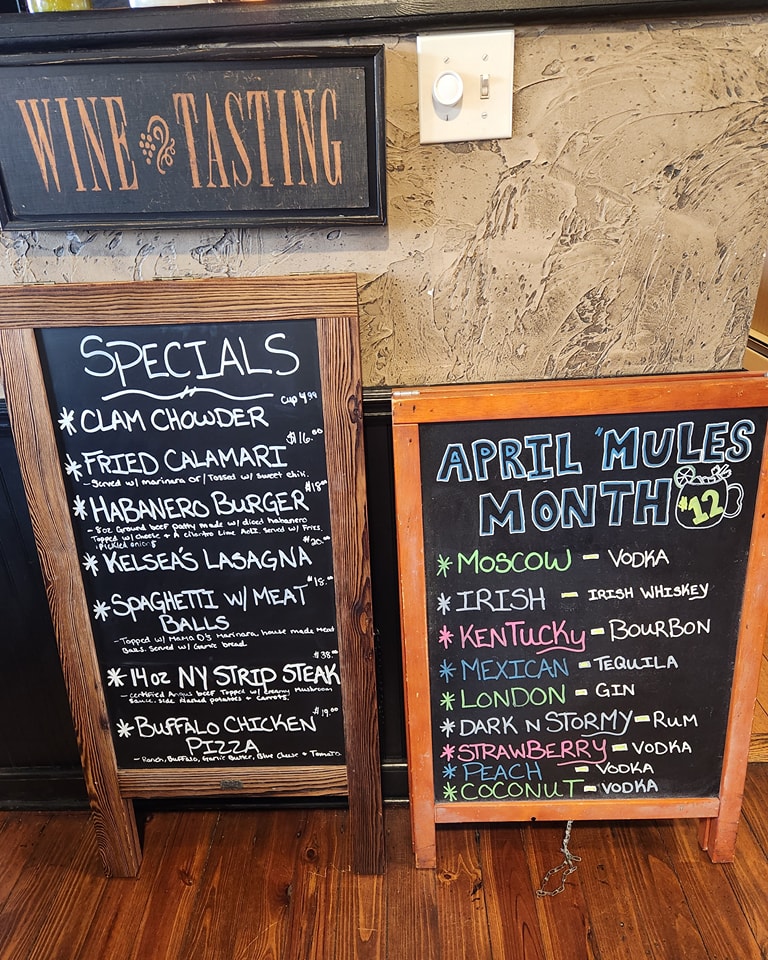 WINE TASTING
SPECIALS
Cup 4.99
* CLAM CHOWDER
$16.00
* FRIED CALAMARI
- Served w/ marinara or/ Tossed w/ sweet chili.
* HABANERO BURGER $18.00
- 8oz Ground beef patty made w/ diced habanero
Topped w/ cheese & A cilantro Lime Aoli. Served w/ Fries.
Pickled onions
$20.00
* KELSEA'S LASAGNA
$18.00
* SPAGHETTI W/ MEAT
BALLS
- Topped w/ Mama D's Marinara, house made Meat
Balls. Served w/ Garlic bread.
$38.00
* 14oz NY STRIP STEAK
- certified Angus beef Topped w/ creamy Mushroom
sauce. side Mashed potatoes & Carrots.
* BUFFALO CHICKEN $19.00
PIZZA
- Ranch, Buffalo, Garlic Butter, Blue Cheese & Tomato
APRIL "MULES
MONTH $12
* MOSCOW - VODKA
* IRISH - IRISH WHISKEY
* KENTUCKY - BOURBON
* MEXICAN - TEQUILA
* LONDON - GIN
* DARK N STORMY - RUM
* STRAWBERRY - VODKA
* PEACH - VODKA
* COCONUT - VODKA